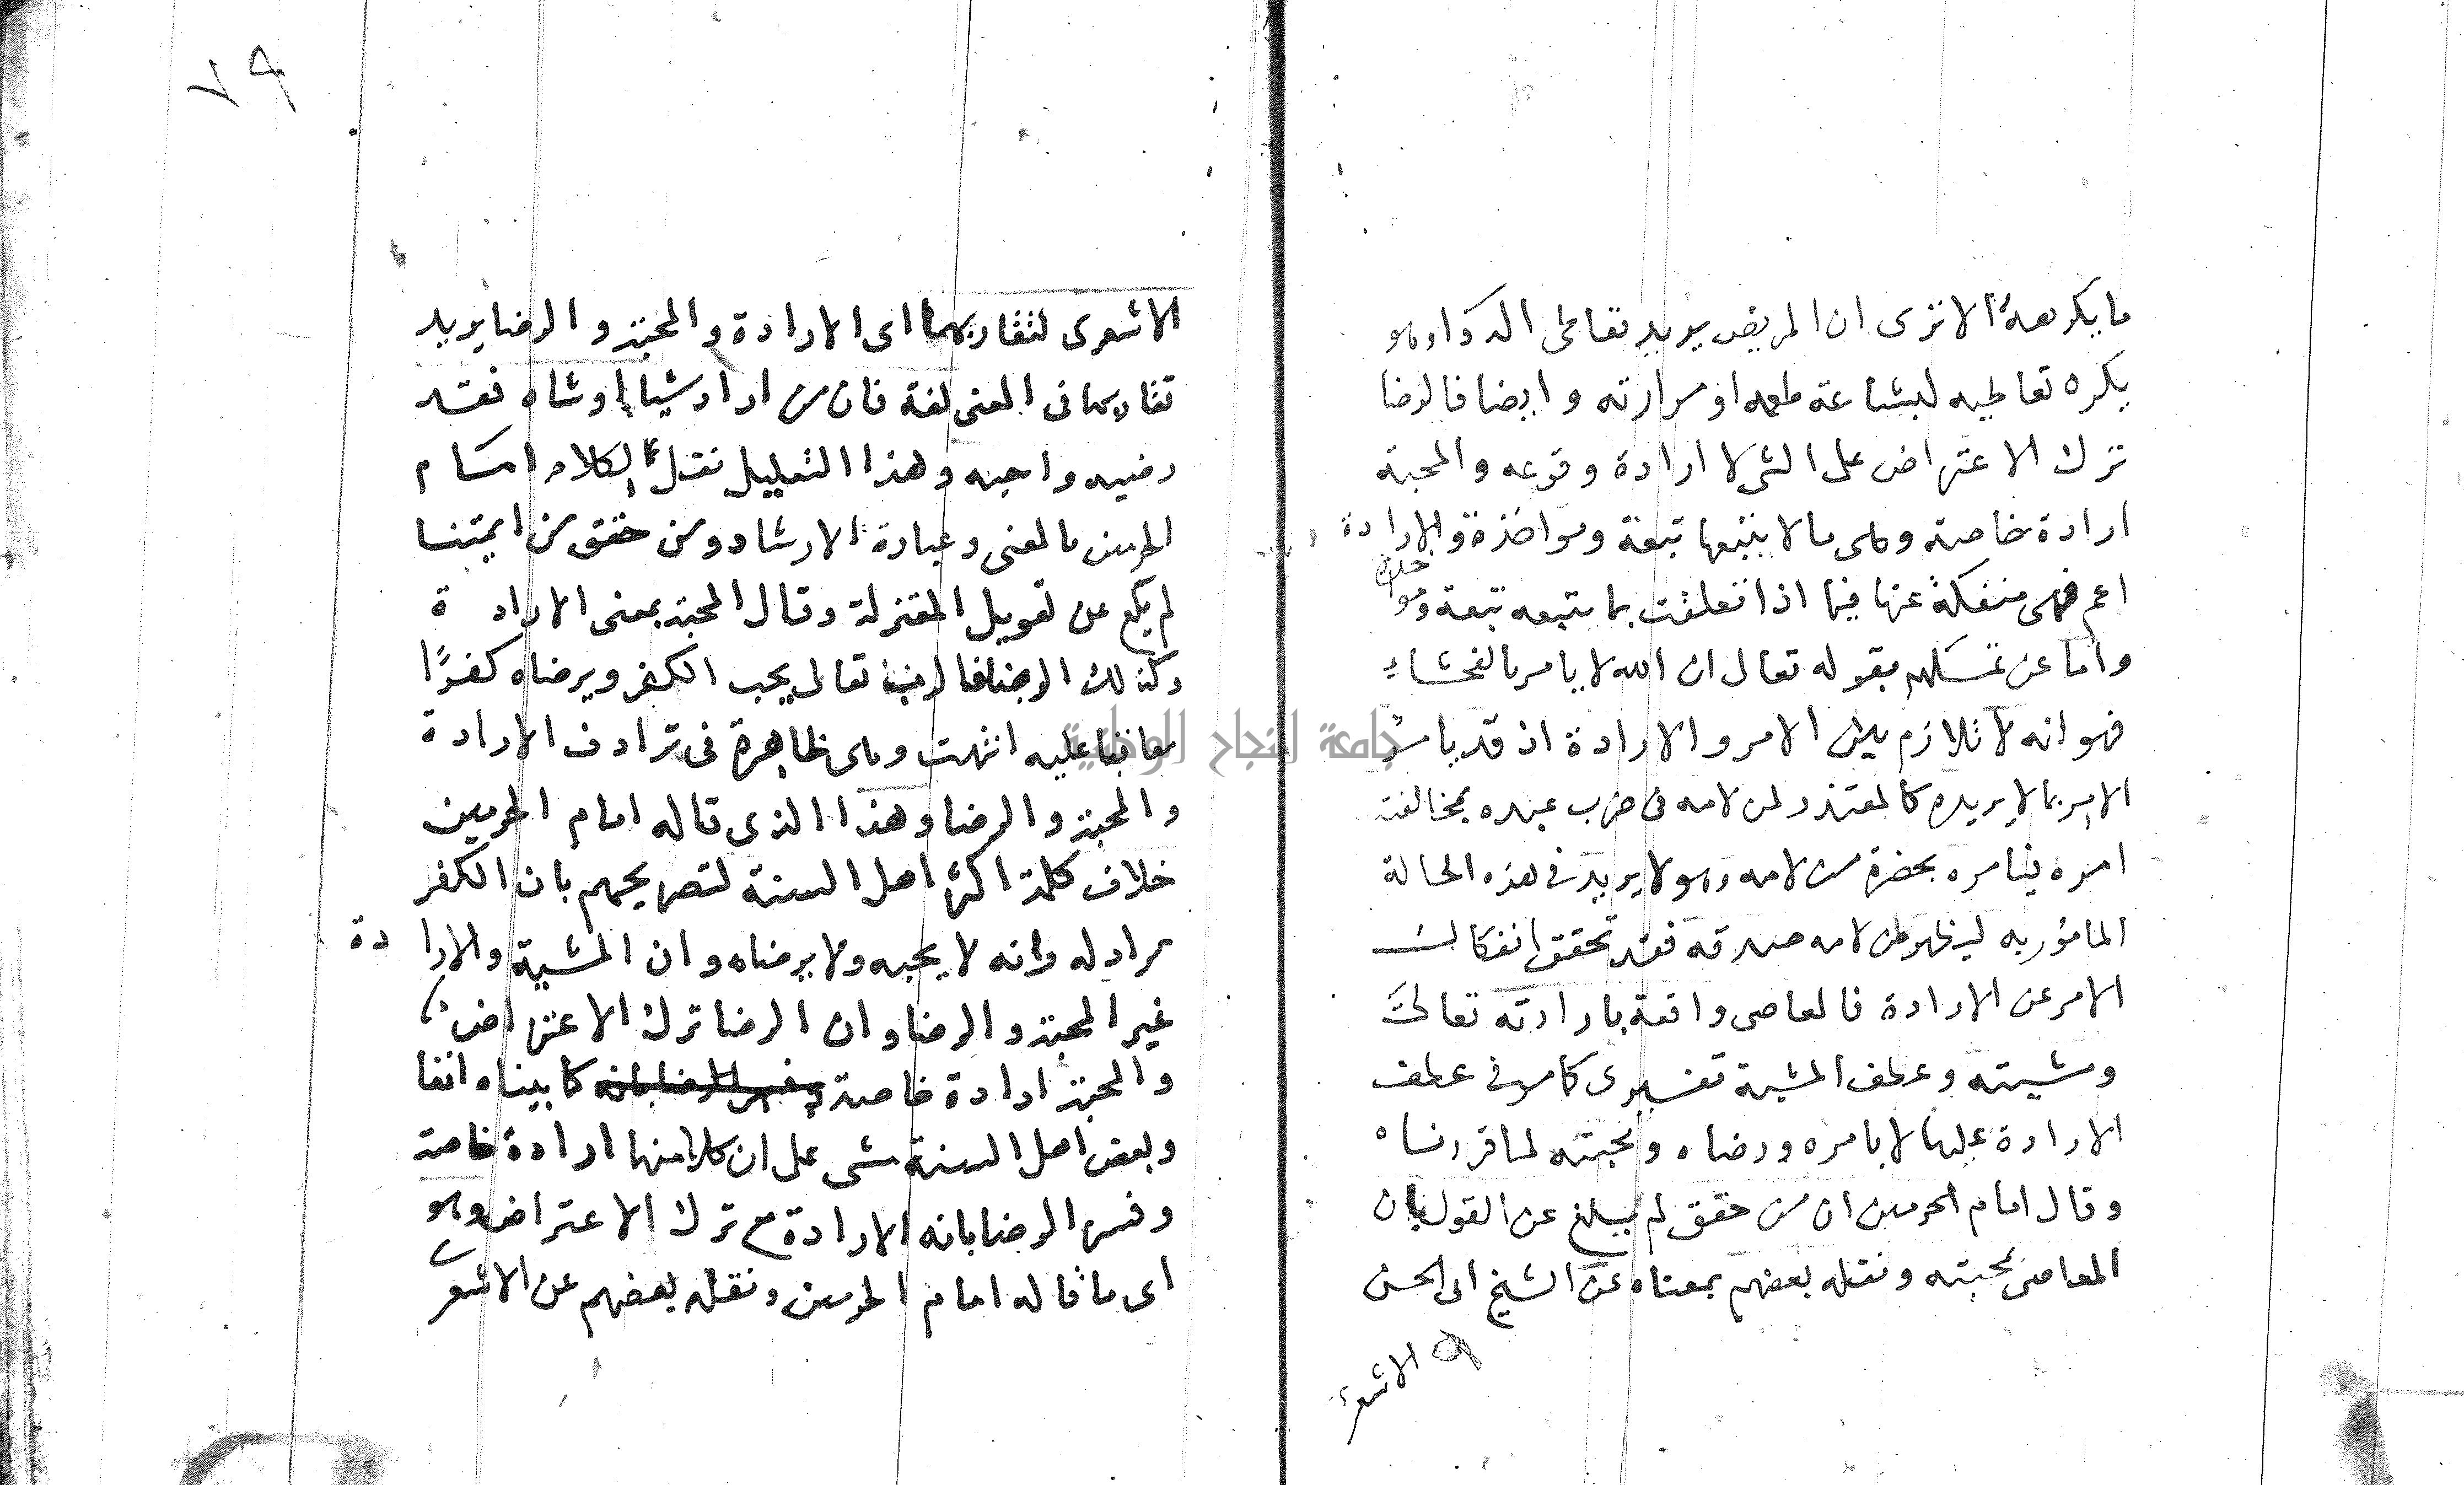 ما يكرهه الا ترى ان المريض يريد تعاطى الدواء وهو
يكره تعاطيه لبشاعة طعمه او مرارته وايضا فالرضا
ترك الاعتراض على الشى لا ارادة وقوعه والمحبة
ارادة خاصة وهى ما لا يتبعها تبعة ومواخذة والارادة
اعم فهى منفكة عنها فيما اذا تعلقت بما يتبعه تبعة ومواخذة
واما عن تمسكهم بقوله تعالى ان الله لا يامر بالفحشاء
فهو انه لا تلازم بين الامر والارادة اذ قد يامر
الامر بما لا يريده كالمعتذر لمن لامه فى ضرب عبده بمخالفته
امره فيامره بحضرة من لامه وهو لا يريد فى هذه الحالة
المامور به ليظهر لمن لامه صدقه فقد تحقق انفكاك
الامر عن الارادة فالمعاصى واقعة بارادته تعالى
ومشيته وعطف المشية تفسيرى كما مر فى عطف
الارادة عليها لا بامره ورضاه ومحبته لما قررناه
وقال امام الحرمين ان من حقق لم يبلغ عن القول بان
المعاصى بمحبته ونقله بعضهم بمعناه عن الشيخ ابى الحسن
الاشعرى
٧٩
الاشعرى لتقاربهما اى الارادة والمحبة والرضا يريد
تقاربها فى المعنى لغة فان من اراد شيا او شاه فقد
رضيه واحبه وهذا التعليل نقل لكلام امام
الحرمين بالمعنى وعبارة الارشاد ومن حقق من ايمتنا
لم يكع عن تهويل المعتزلة وقال المحبة بمعنى الارادة
وكذلك الرضا فالرب تعالى يحب الكفر ويرضاه كفرًا
معاقبا عليه انتهت وهى ظاهرة فى ترادف الارادة
والمحبة والرضا وهذا الذى قاله امام الحرمين
خلاف كلمة اكثر اهل السنة لتصريحهم بان الكفر
مراد له وانه لا يحبه ولا يرضاه وان المشية والارادة
غير المحبة والرضا وان الرضا ترك الاعتراض
والمحبة ارادة خاصة كما بيناه انفا
وبعض اهل السنة مشى على ان كلا منها ارادة خاصة
وفسر الرضا بانه الارادة مع ترك الاعتراض وهو
اى ما قاله امام الحرمين ونقله بعضهم عن الاشعرى
جامعة النجاح الوطنية